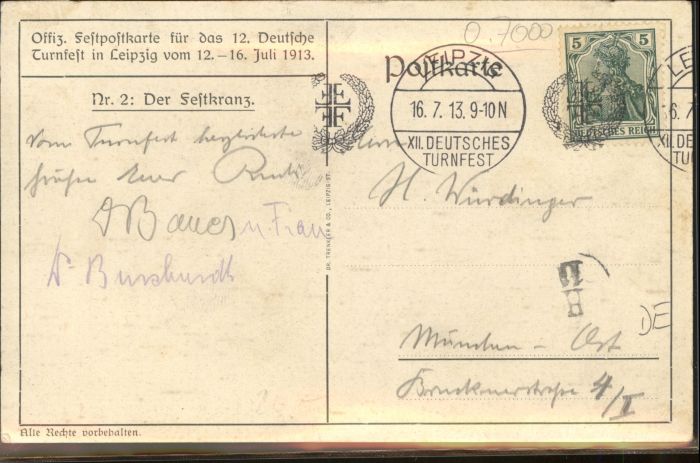 Offiz. Festpostkarte für das 12. Deutsche
Turnfest in Leipzig vom 12.–16. Juli 1913.
Nr. 2: Der Festkranz.
Vom Turnfest
Bauer u. Frau
Burkhardt
Alle Rechte vorbehalten.
DR. TRENKLER & CO., LEIPZIG-ST.
0.7000
Postkarte
LEIPZIG
16. 7. 13. 9-10 N
XII. DEUTSCHES
TURNFEST
5 5
DEUTSCHES REICH
LE
6. 7
XII. DE
TU
H. Würdinger
DE
München – Ost
Brucknerstraße 4/I